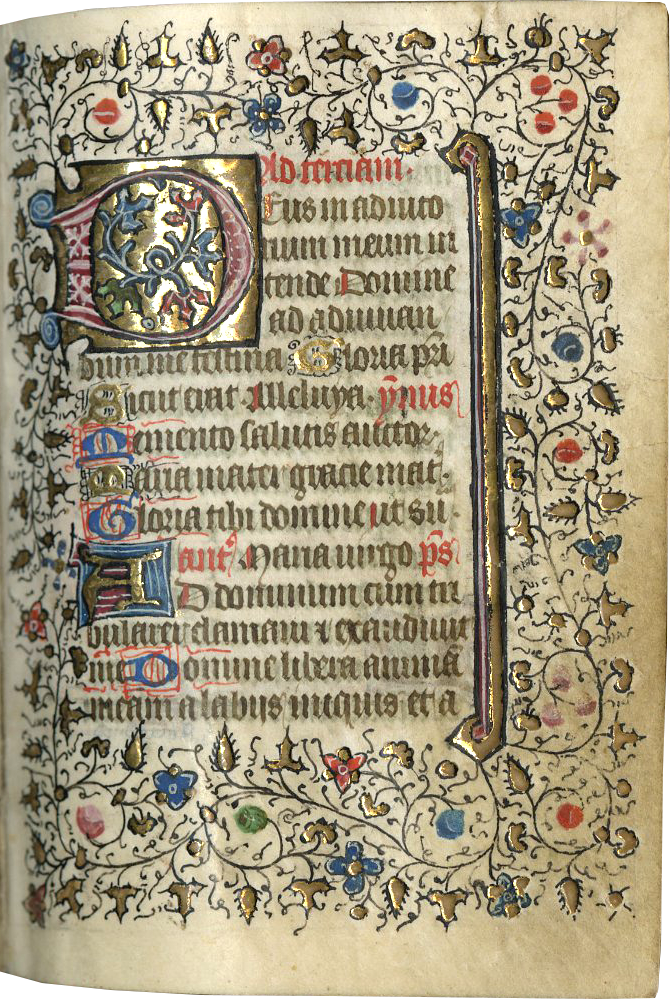 Ad terciam.
Deus in adiuto
rium meum in
tende Domine
ad adiuuan
dum me festina Gloria pri
Sicut erat Alleluya. ympnus
Memento salutis auctor
Maria mater gracie mat.
Gloria tibi domine ut su.
ant' Maria uirgo ps
AD dominum cum tri
bularer clamaui ⁊ exaudiuit
me Domine libera animã
meam a labijs iniquis et a